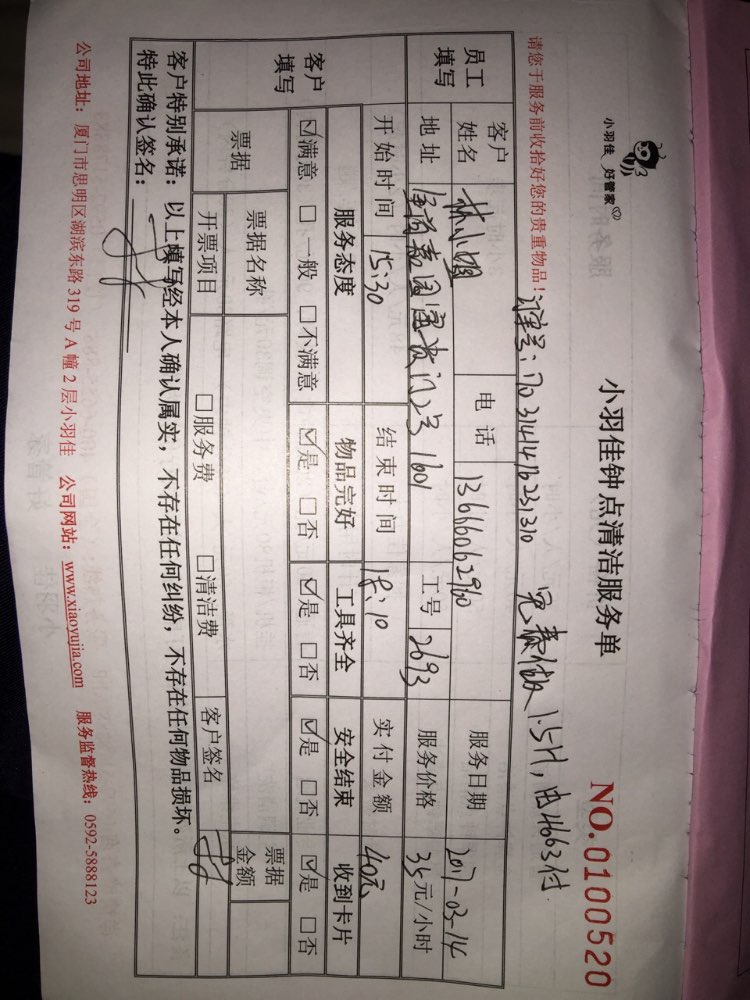 小羽佳 好管家
小羽佳钟点清洁服务单
NO.0100520
请您于服务前收拾好您的贵重物品！
1.5H，由4663付
员工填写
客户姓名 林小 电话 13616062960 服务日期 2017-03-14
地址 2号1601 工号 2693 服务价格 35元/小时
开始时间 15:30 结束时间 18:10 实付金额 40元
客户填写
服务态度 物品完好 工具齐全 安全结束 收到卡片
☑满意 □一般 □不满意 ☑是 □否 ☑是 □否 ☑是 □否 ☑是 □否
票据 票据名称 票据金额
开票项目 □服务费 □清洁费 客户签名
客户特别承诺：以上填写经本人确认属实，不存在任何纠纷，不存在任何物品损坏。
特此确认签名：
公司地址：厦门市思明区湖滨东路319号A幢2层小羽佳 公司网站：www.xiaoyujia.com 服务监督热线：0592-5888123